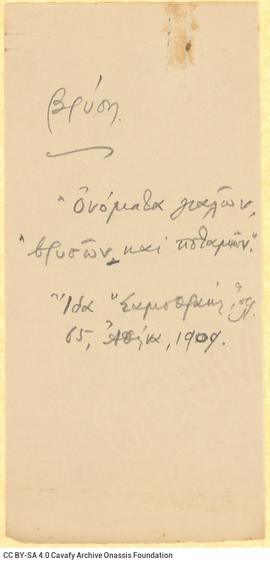 βρύση.
"Ὀνόματα γιαλῶν,
"βρυσῶν, καὶ ποταμῶν".
Ἴδα "Σαμοθράκη", σελ.
65, Ἀθήνα, 1909.
CC BY-SA 4.0 Cavafy Archive Onassis Foundation